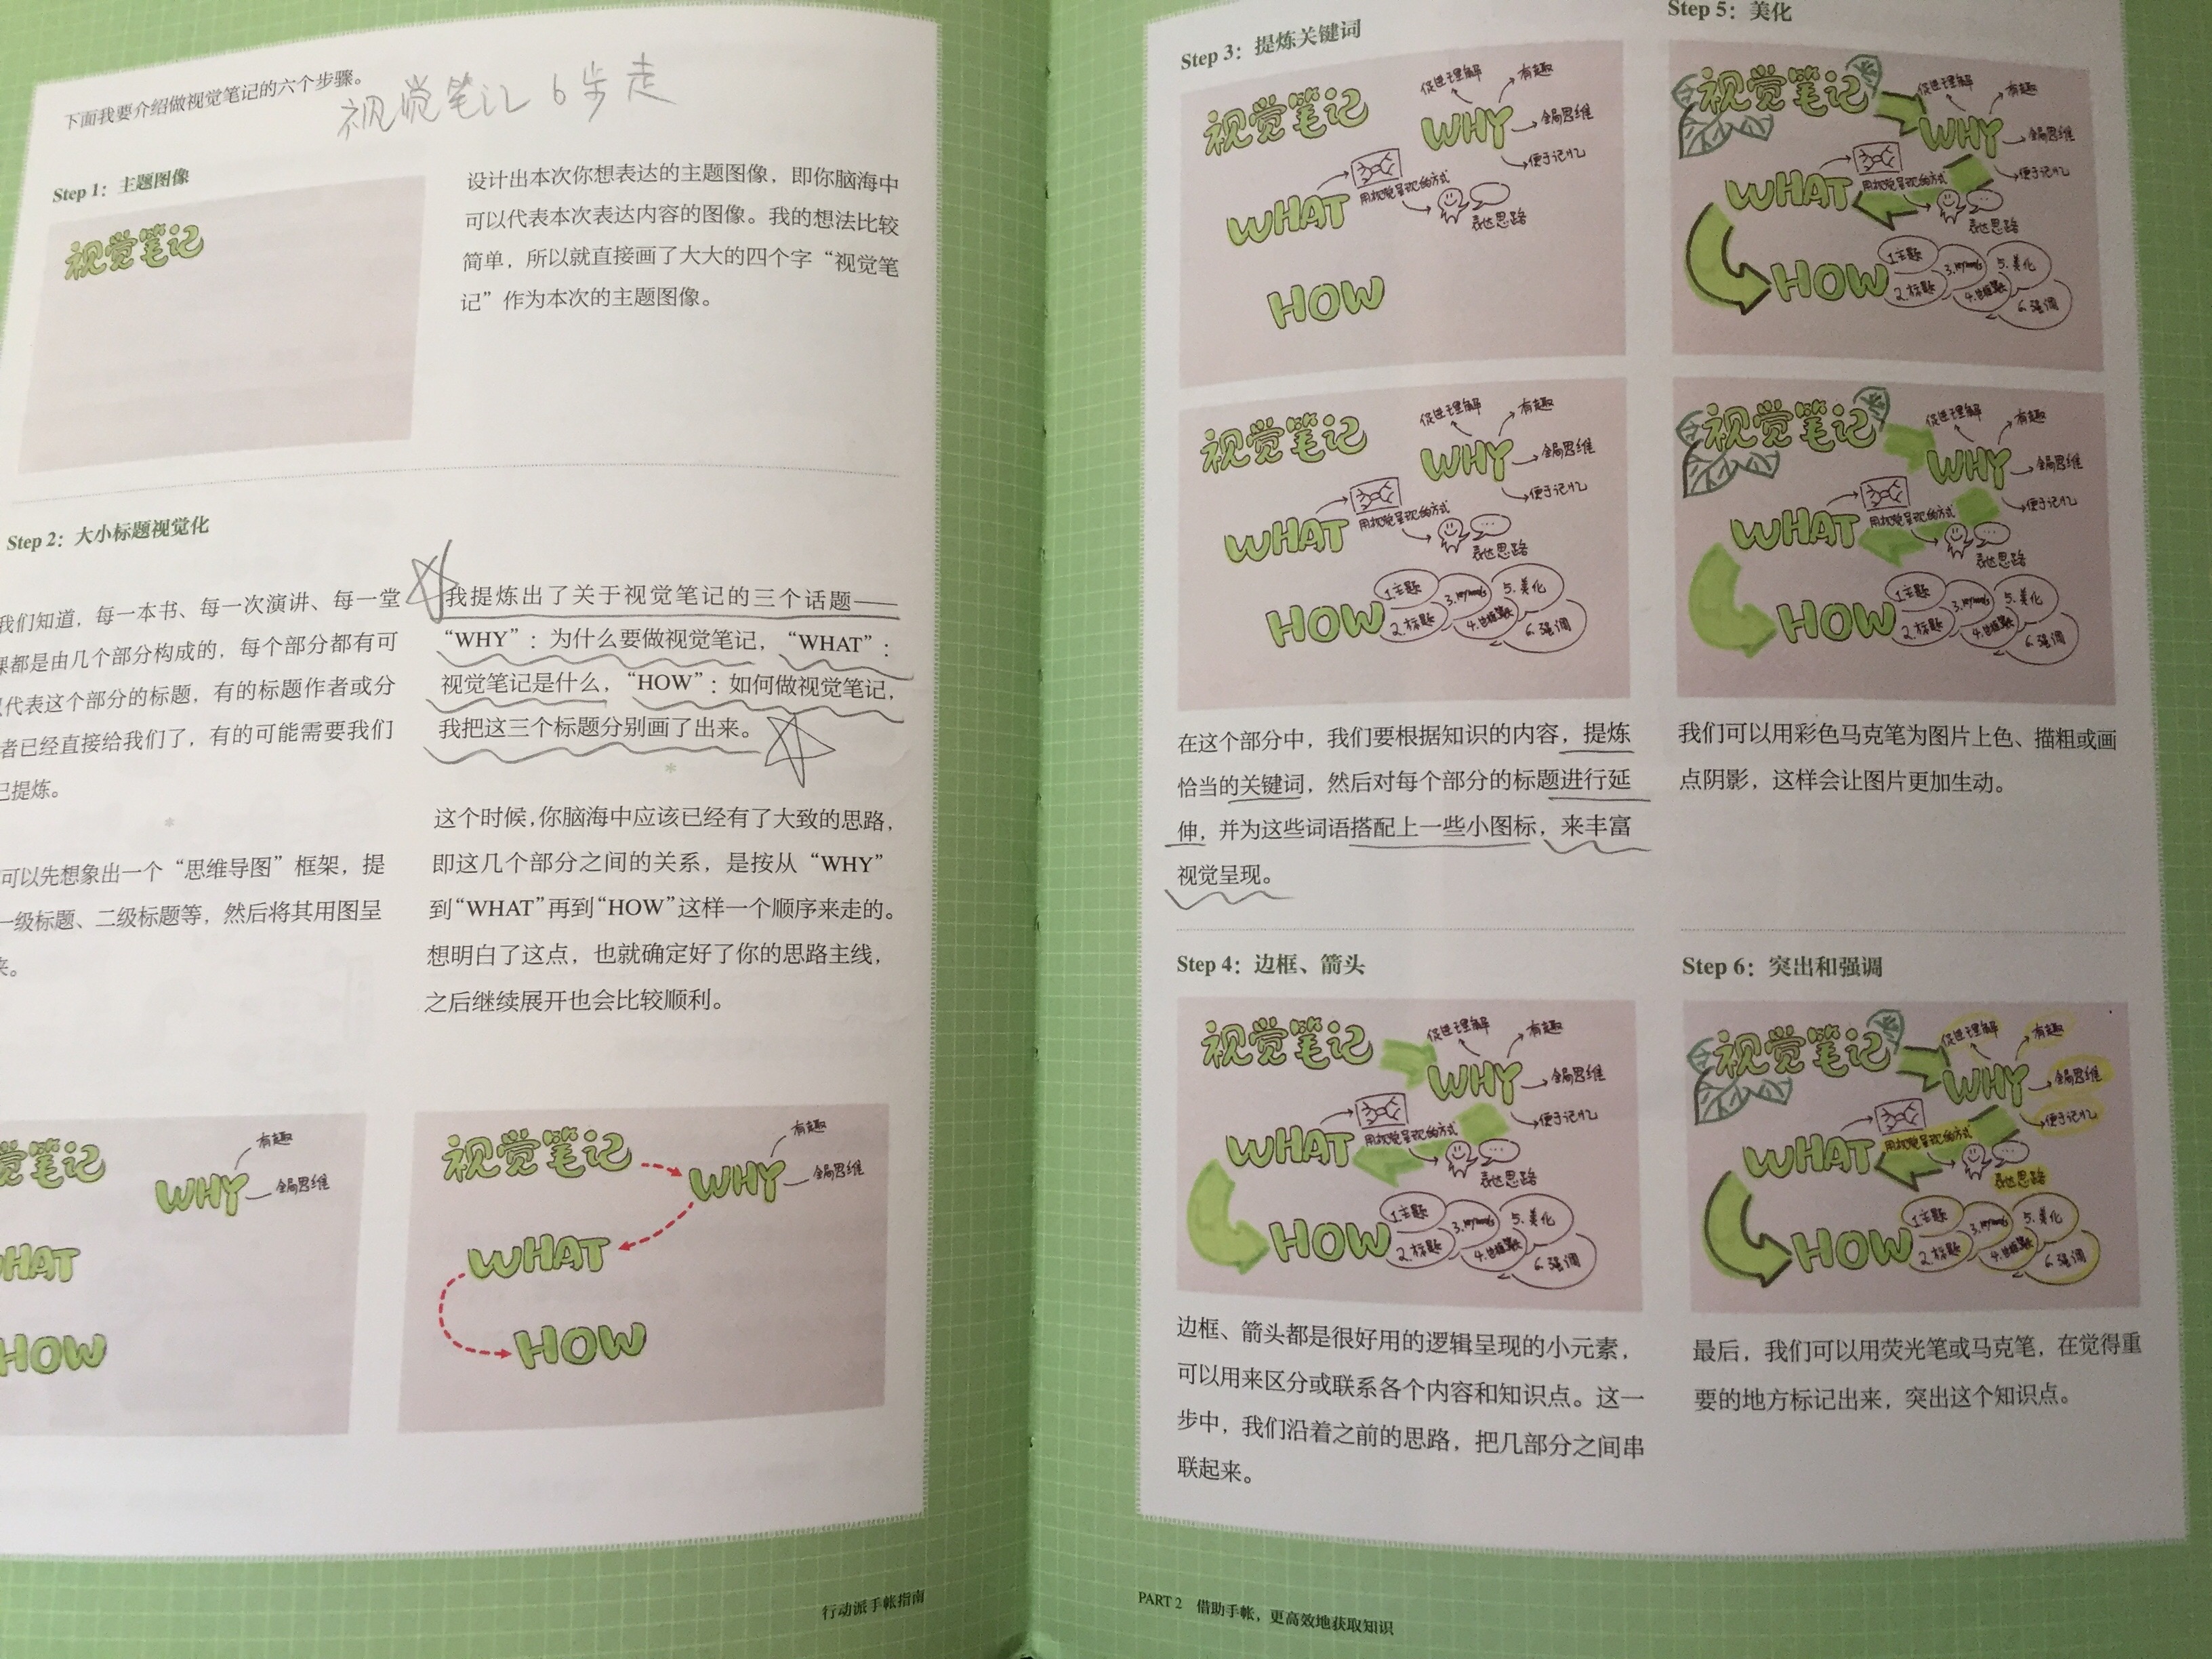 下面我要介绍做视觉笔记的六个步骤。
视觉笔记6步走
Step 1：主题图像
视觉笔记
设计出本次你想表达的主题图像，即你脑海中
可以代表本次表达内容的图像。我的想法比较
简单，所以就直接画了大大的四个字“视觉笔
记”作为本次的主题图像。
Step 2：大小标题视觉化
我们知道，每一本书、每一次演讲、每一堂
课都是由几个部分构成的，每个部分都有可
代表这个部分的标题，有的标题作者或分
者已经直接给我们了，有的可能需要我们
己提炼。
*
可以先想象出一个“思维导图”框架，提
一级标题、二级标题等，然后将其用图呈
来。
我提炼出了关于视觉笔记的三个话题——
“WHY”：为什么要做视觉笔记，“WHAT”：
视觉笔记是什么，“HOW”：如何做视觉笔记，
我把这三个标题分别画了出来。
*
这个时候，你脑海中应该已经有了大致的思路，
即这几个部分之间的关系，是按从“WHY”
到“WHAT”再到“HOW”这样一个顺序来走的。
想明白了这点，也就确定好了你的思路主线，
之后继续展开也会比较顺利。
觉笔记
有趣
WHY
全局思维
HAT
HOW
视觉笔记
有趣
WHY
全局思维
WHAT
HOW
行动派手帐指南
Step 3：提炼关键词
视觉笔记
促进理解
有趣
WHY
全局思维
便于记忆
WHAT
用视觉呈现的方式
表达思路
HOW
视觉笔记
促进理解
有趣
WHY
全局思维
便于记忆
WHAT
用视觉呈现的方式
表达思路
HOW
1.主题
2.标题
5.美化
6.强调
在这个部分中，我们要根据知识的内容，提炼
恰当的关键词，然后对每个部分的标题进行延
伸，并为这些词语搭配上一些小图标，来丰富
视觉呈现。
Step 4：边框、箭头
视觉笔记
促进理解
有趣
WHY
全局思维
便于记忆
WHAT
用视觉呈现的方式
表达思路
HOW
1.主题
2.标题
5.美化
6.强调
边框、箭头都是很好用的逻辑呈现的小元素，
可以用来区分或联系各个内容和知识点。这一
步中，我们沿着之前的思路，把几部分之间串
联起来。
Step 5：美化
视觉笔记
促进理解
有趣
WHY
全局思维
便于记忆
WHAT
用视觉呈现的方式
表达思路
HOW
1.主题
2.标题
5.美化
6.强调
视觉笔记
促进理解
有趣
WHY
全局思维
便于记忆
WHAT
用视觉呈现的方式
表达思路
HOW
1.主题
2.标题
5.美化
6.强调
我们可以用彩色马克笔为图片上色、描粗或画
点阴影，这样会让图片更加生动。
Step 6：突出和强调
视觉笔记
促进理解
有趣
WHY
全局思维
便于记忆
WHAT
用视觉呈现的方式
表达思路
HOW
1.主题
2.标题
5.美化
6.强调
最后，我们可以用荧光笔或马克笔，在觉得重
要的地方标记出来，突出这个知识点。
PART 2 借助手帐，更高效地获取知识